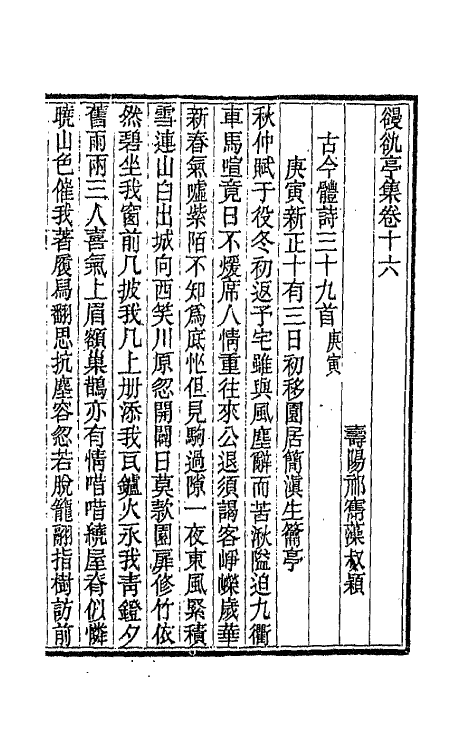 䜱䜪亭集卷十六
壽陽祁寯藻叔穎
古今體詩三十九首庚寅
庚寅新正十有三日初移園居簡滇生簫亭
秋仲賦于役冬初返予宅雖與風塵辭而苦湫隘迫九衢
車馬喧竟日不煖席人情重往來公退須謁客崢嶸歲華
新春氣噓紫陌不知爲底忙但見駒過隙一夜東風緊積
雪連山白出城向西笑川原忽開闢日莫款園扉修竹依
然碧坐我窗前几披我几上冊添我瓦鑪火永我靑鐙夕
舊雨兩三人喜氣上眉額巢鵲亦有情喈喈繞屋脊似憐
曉山色催我著履屐翻思抗塵容忽若脫籠翮指樹訪前